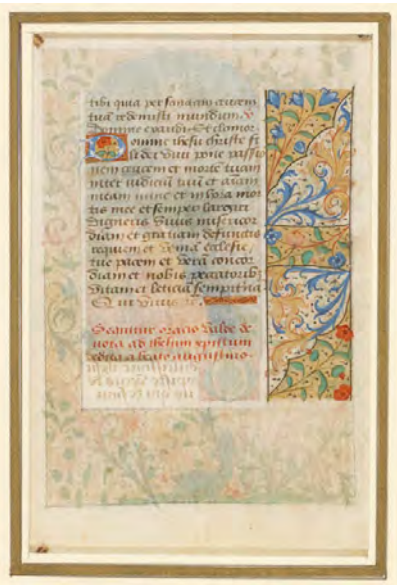 tibi quia per sanctam crucem
tuã redemisti mundum. v
Domine exaudi. Et clamor
Domine ihesu christe fi
li dei vivi pone passio
nem crucem et mortẽ tuam
inter iudiciũ tuũ et aĩam
meam nunc et in hora mor
tis mee et semper largiri
digneris vivis misericor
diam et gratiam defunctis
requiem et veniã ecclesie
tue pacem et verã concor
diam et nobis peccatoribꝰ
vitam et leticiã sempiternã
Qui vivis
Sequitur oracio valde de
vota ad ihesum xpistum
edita a beato augustino.